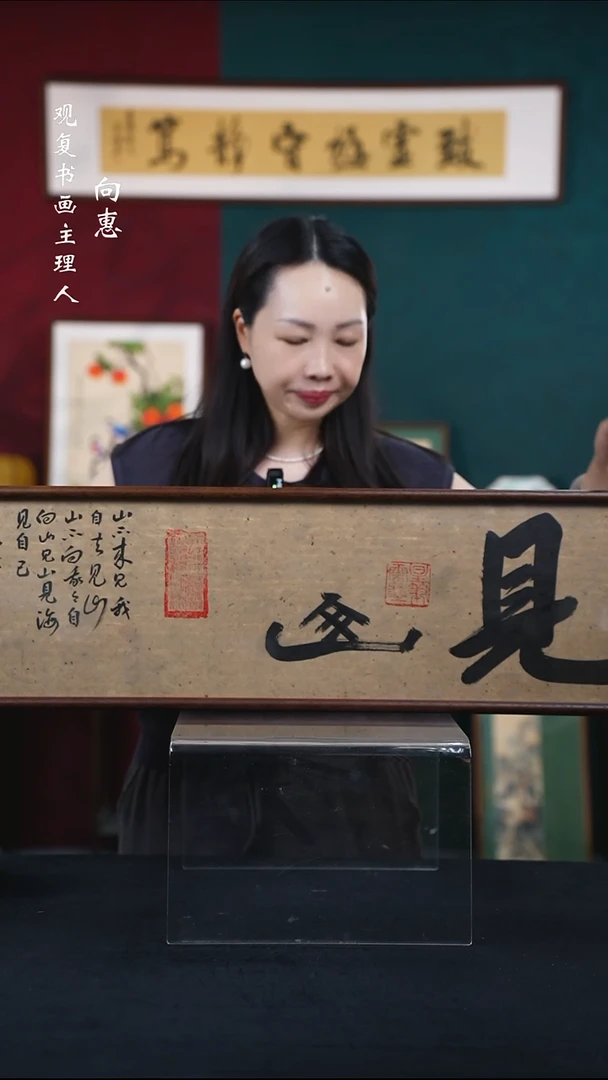 观复书画主理人
向惠
致虚極守静篤
見山
山不来见我
自去见山
山不向我々自
向山见山見海
見自己